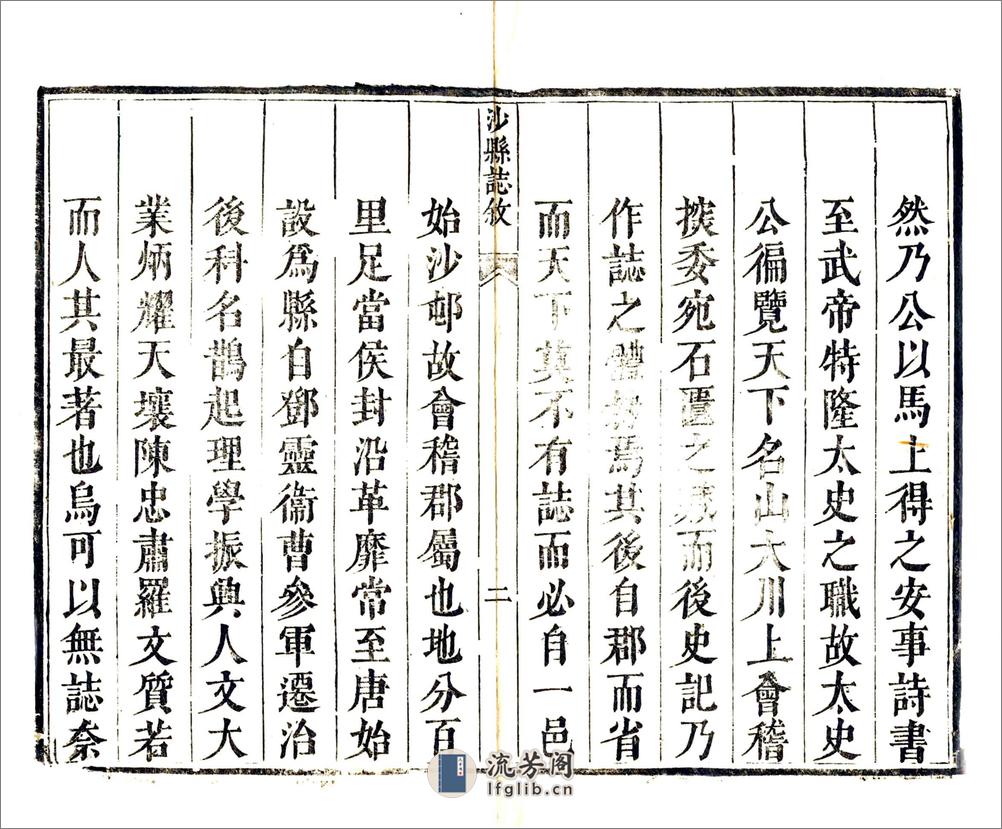 然乃公以馬上得之安事詩書
至武帝特隆太史之職故太史
公徧覽天下名山大川上會稽
探委宛石匱之藏而後史記乃
作誌之體昉焉其後自郡而省
而天下莫不有誌而必自一邑
沙縣誌敘
二
始沙邨故會稽郡屬也地分百
里足當侯封沿革靡常至唐始
設爲縣自鄧靈衞曹參軍遷治
後科名鵲起理學振興人文大
業炳耀天壤陳忠肅羅文質若
而人其最著也烏可以無誌奈
流芳阁
lfglib.cn